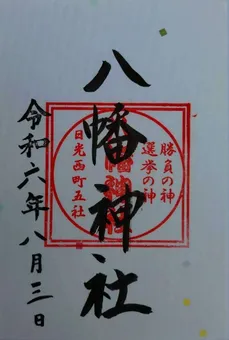 八幡神社
勝負の神
選挙の神
日光西町五社
令和六年八月三日